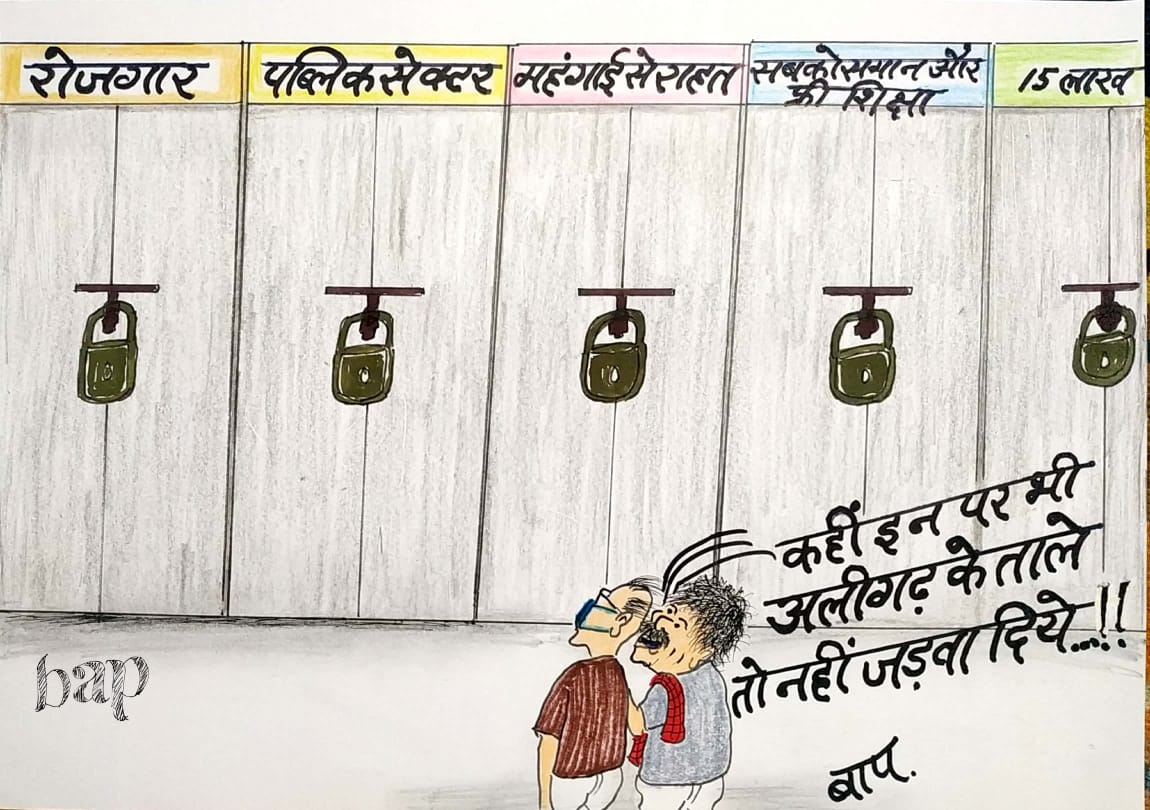 रोजगार
पब्लिक सेक्टर
महंगाई से राहत
सबको समान और
फ्री शिक्षा
15 लाख
कहीं इन पर भी
अलीगढ़ के ताले
तो नहीं जड़वा दिये...!!
bap
बाप.